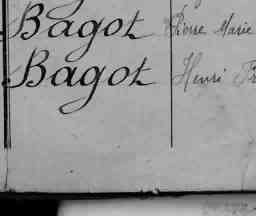 Bagot Pierre Marie
Bagot Henri